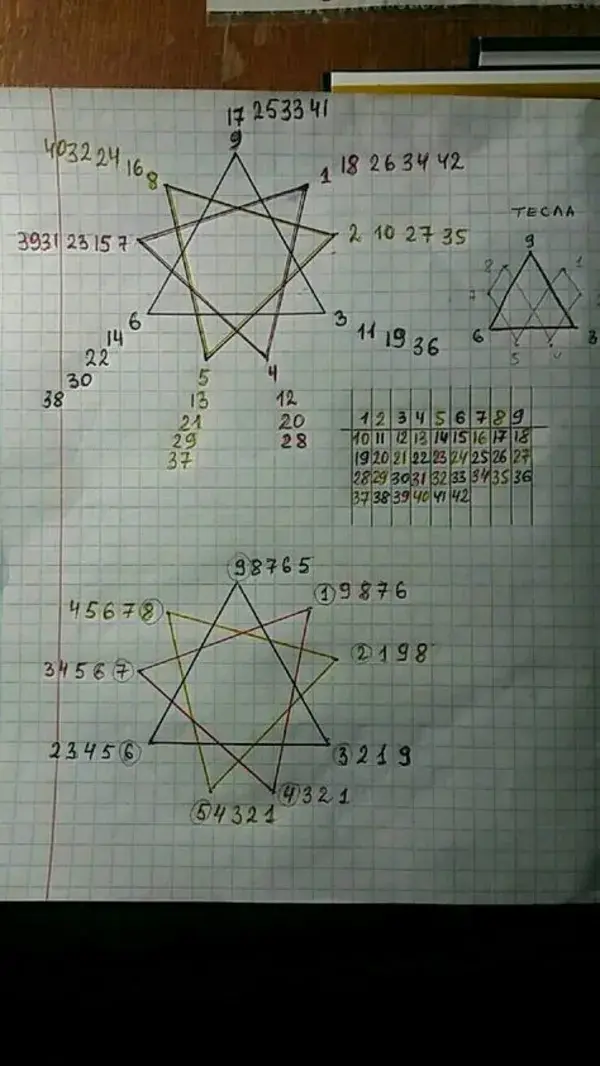 17 25 33 41
9
40 32 24 16 8
1 18 26 34 42
39 31 23 15 7
2 10 27 35
ТЕСЛА
9
8 1
7 2
6 3
5 4
6
14
22
30
38
3 11 19 36
5
13
21
29
37
4
12
20
28
1 2 3 4 5 6 7 8 9
10 11 12 13 14 15 16 17 18
19 20 21 22 23 24 25 26 27
28 29 30 31 32 33 34 35 36
37 38 39 40 41 42
9 8 7 6 5
4 5 6 7 8
1 9 8 7 6
3 4 5 6 7
2 1 9 8
2 3 4 5 6
3 2 1 9
5 4 3 2 1
4 3 2 1